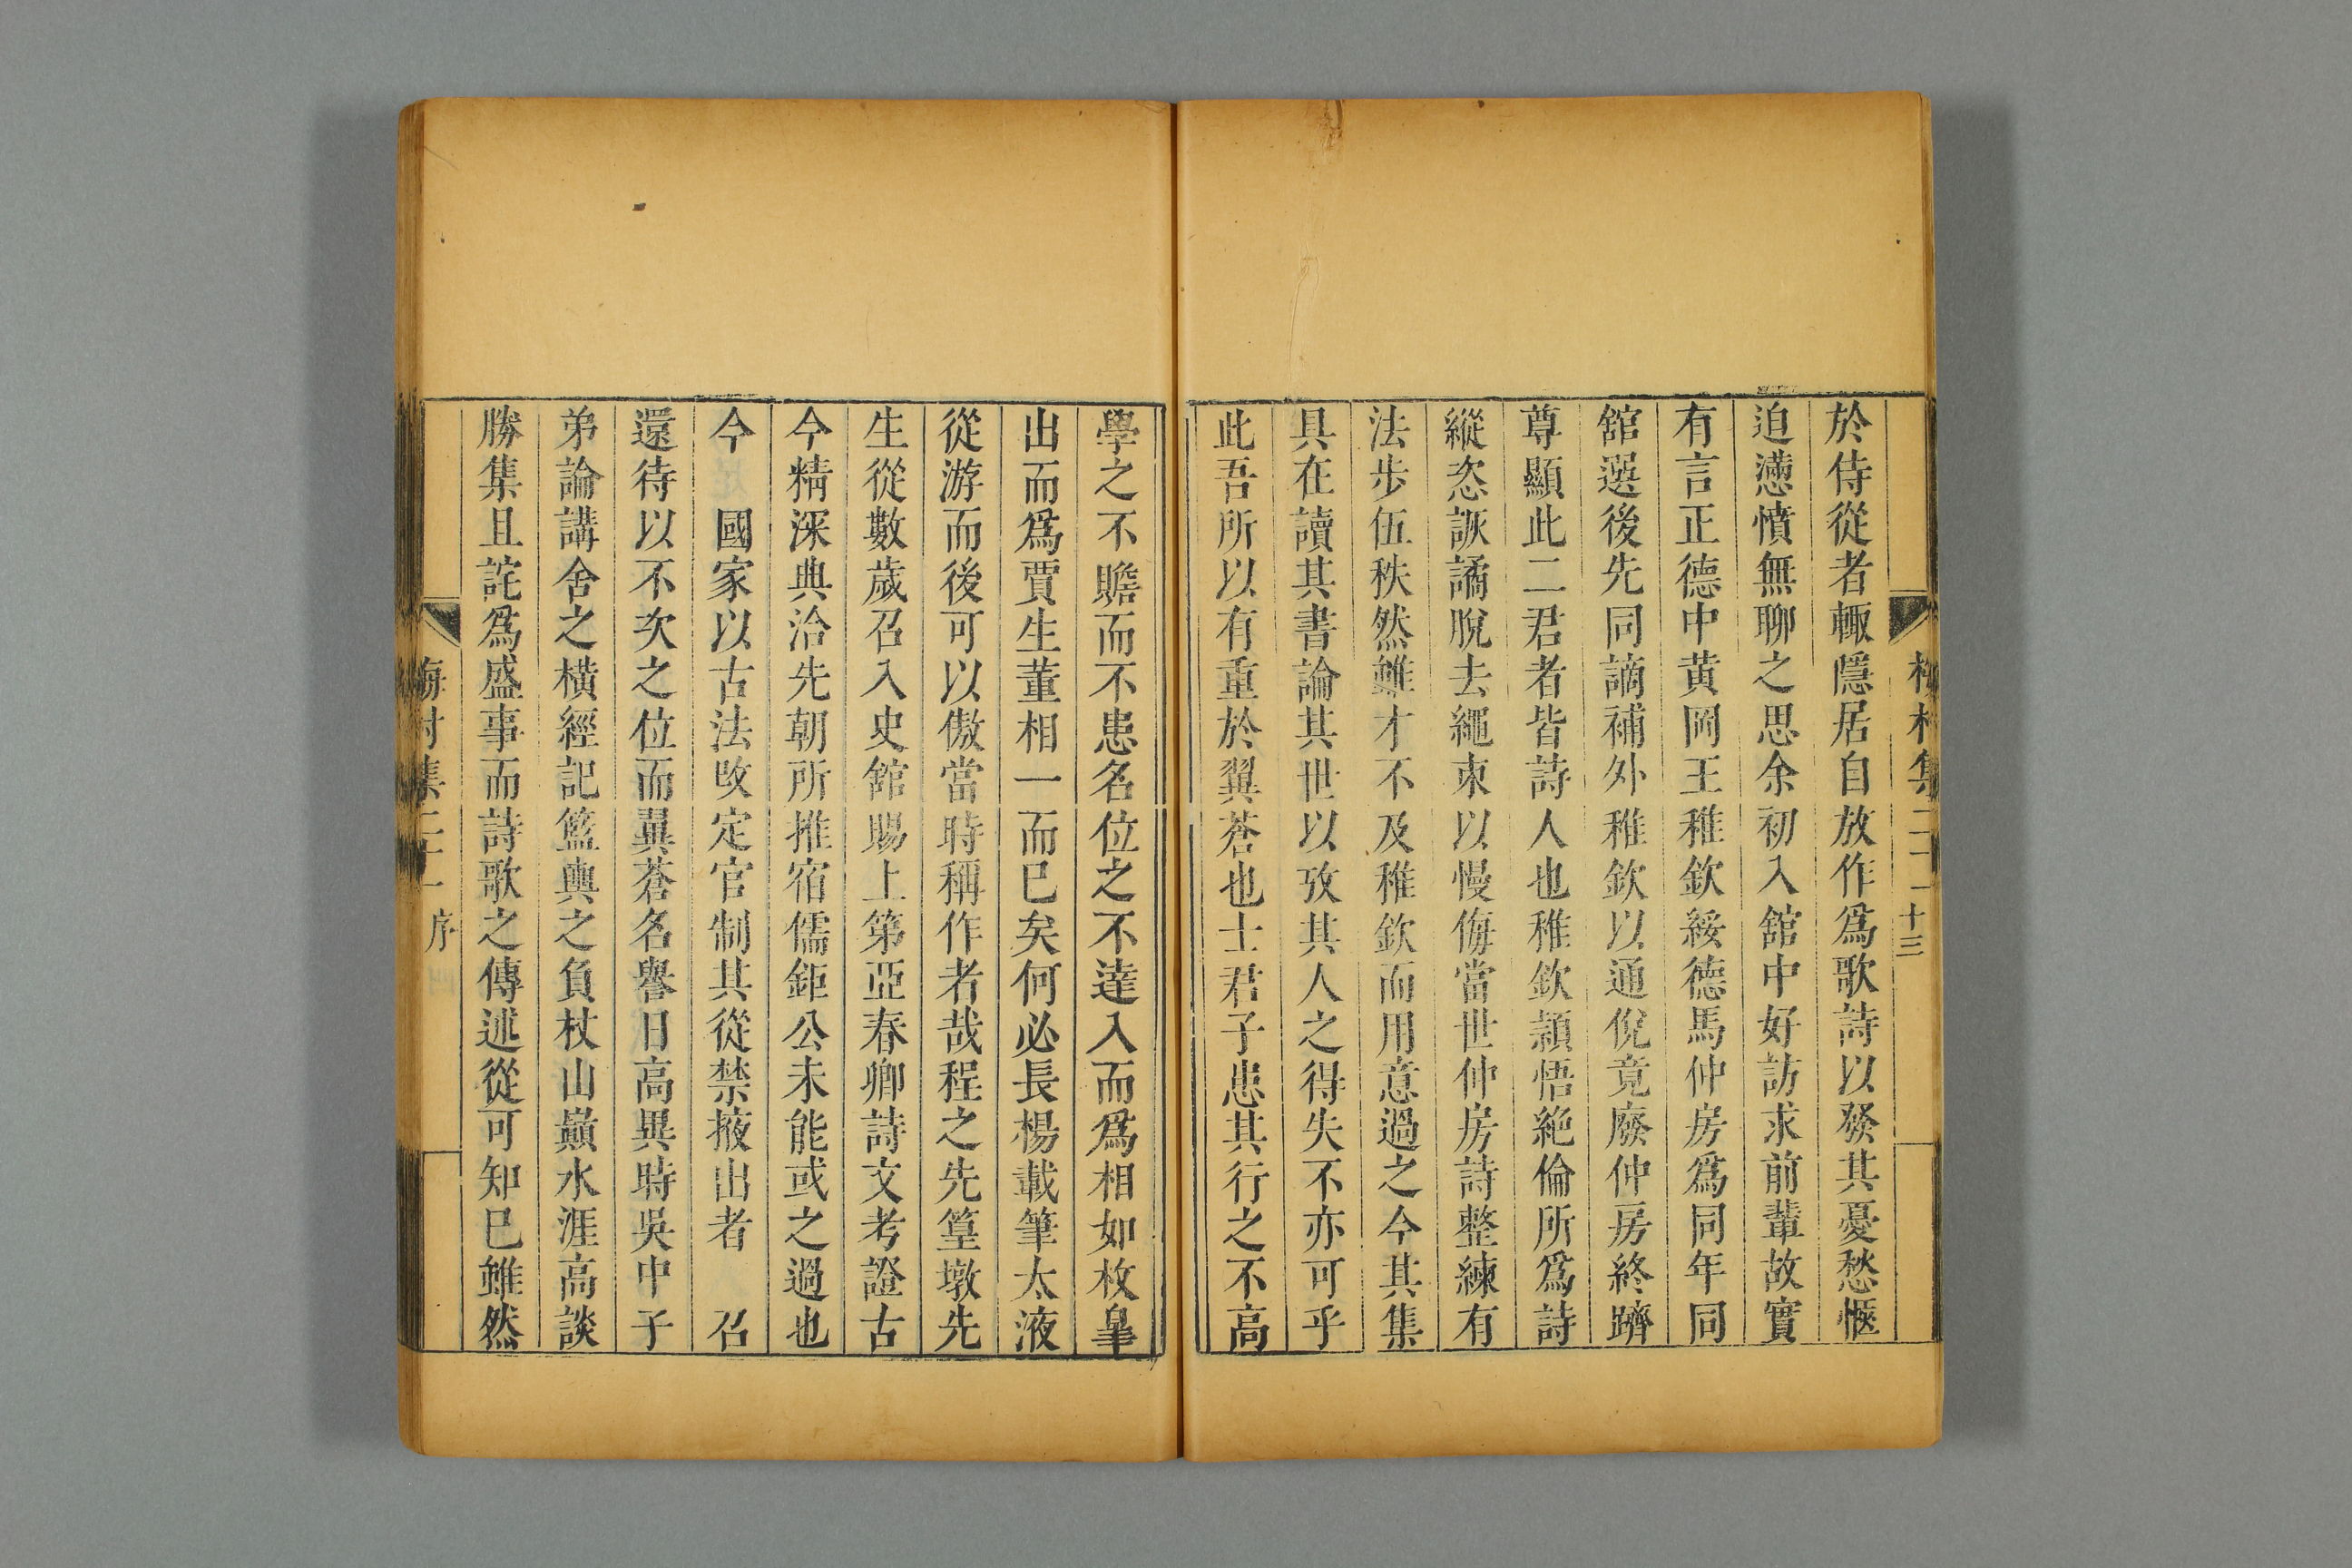 梅村集二十一 十三
於侍從者輙隱居自放作爲歌詩以發其憂愁愜
迫懣憤無聊之思余初入舘中好訪求前輩故實
有言正德中黃岡王稚欽綏德馬仲房爲同年同
舘選後先同謫補外稚欽以通侻竟廢仲房終躋
尊顯此二君者皆詩人也稚欽頴悟絶倫所爲詩
縱恣詼譎脫去繩束以慢侮當世仲房詩整練有
法步伍秩然雖才不及稚欽而用意過之今其集
具在讀其書論其世以攷其人之得失不亦可乎
此吾所以有重於翼蒼也士君子患其行之不高
學之不贍而不患名位之不達入而爲相如枚皐
出而爲賈生董相一而已矣何必長楊載筆太液
從游而後可以傲當時稱作者哉程之先篁墩先
生從數歲召入史舘賜上第亞春卿詩文考證古
今精深典洽先朝所推宿儒鉅公未能或之過也
今 國家以古法改定官制其從禁掖出者 召
還待以不次之位而翼蒼名譽日高異時吳中子
弟論講舍之橫經記籃輿之負杖山巔水涯高談
勝集且詫爲盛事而詩歌之傳述從可知已雖然
梅村集二十一 序